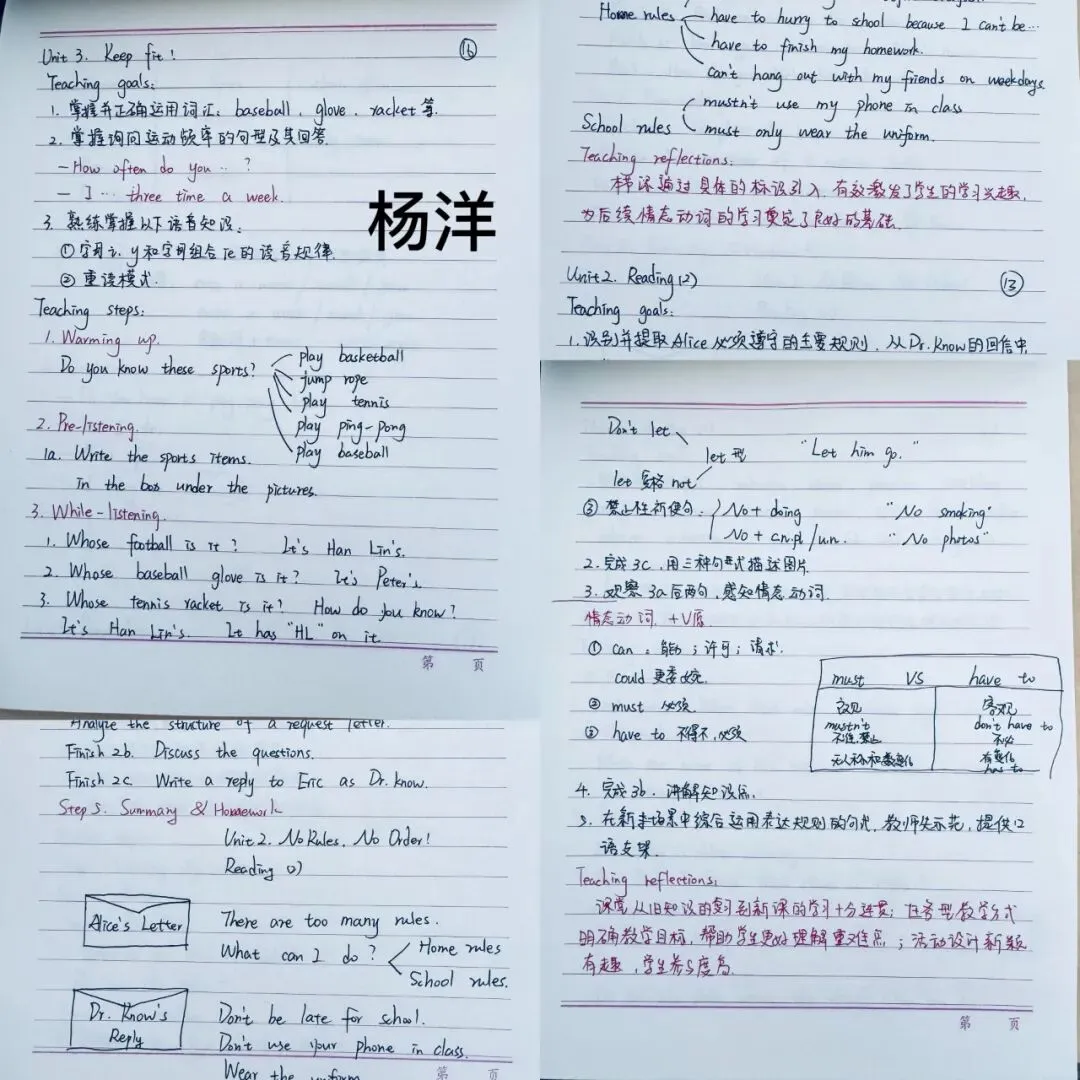 Unit 3. Keep fit! ⑯
Teaching goals:
1. 掌握并正确运用词汇: baseball, glove, racket 等.
2. 掌握询问运动频率的句型及其回答.
—How often do you …?
— I … three time a week.
杨洋
3. 熟练掌握以下语音知识:
①字母i、y和字母组合ie的读音规律.
② 重读模式.
Teaching steps:
1. Warming up.
Do you know these sports?
play basketball
jump rope
play tennis
play ping-pong
play baseball
2. Pre-listening.
1a. Write the sports items.
in the box under the pictures.
3. While-listening.
1. Whose football is it? It's Han Lin's.
2. Whose baseball glove is it? It's Peter's.
3. Whose tennis racket is it? How do you know?
It's Han Lin's. It has "HL" on it.
第 页
Home rules
have to hurry to school because I can't be…
have to finish my homework.
can't hang out with my friends on weekdays
School rules
mustn't use my phone in class
must only wear the uniform.
Teaching reflections:
本课通过具体的标识引入,有效激发了学生的学习兴趣,
为后续情态动词的学习奠定了良好的基础.
Unit 2. Reading (2) ⑬
Teaching goals:
1. 识别并提取Alice必须遵守的主要规则,从Dr. Know的回信中
Analyze the structure of a request letter.
Finish 2b. Discuss the questions.
Finish 2c. Write a reply to Eric as Dr. Know.
Step 5. Summary & Homework
Unit 2. No Rules, No Order!
Reading (1)
Alice's Letter
There are too many rules.
What can I do?
Home rules
School rules.
Dr. Know's
Reply
Don't be late for school.
Don't use your phone in class.
Wear the uniform
第 页
Don't let
let 型 "Let him go."
let 宾格 not
③ 禁止性祈使句:
No + doing "No smoking"
No + cn.pl / un. "No photos"
2. 完成3c, 用三种句式描述图片.
3. 观察3a后两句, 感知情态动词.
情态动词 + V原
① can : 能力 ; 许可 ; 请求.
could 更委婉.
② must 必须
③ have to 不得不, 必须
must VS have to
主观 客观
mustn't don't have to
不准,禁止 不必
无人称和数变化 有变化
has to
4. 完成3b, 讲解知识点.
5. 在新场景中综合运用表达规则的句式, 教师先示范, 提供口
语支架.
Teaching reflections:
课堂从旧知识的复习到新课的学习十分连贯; 任务型教学方式
明确教学目标, 帮助学生更好理解重难点; 活动设计新颖
有趣, 学生参与度高.
第 页